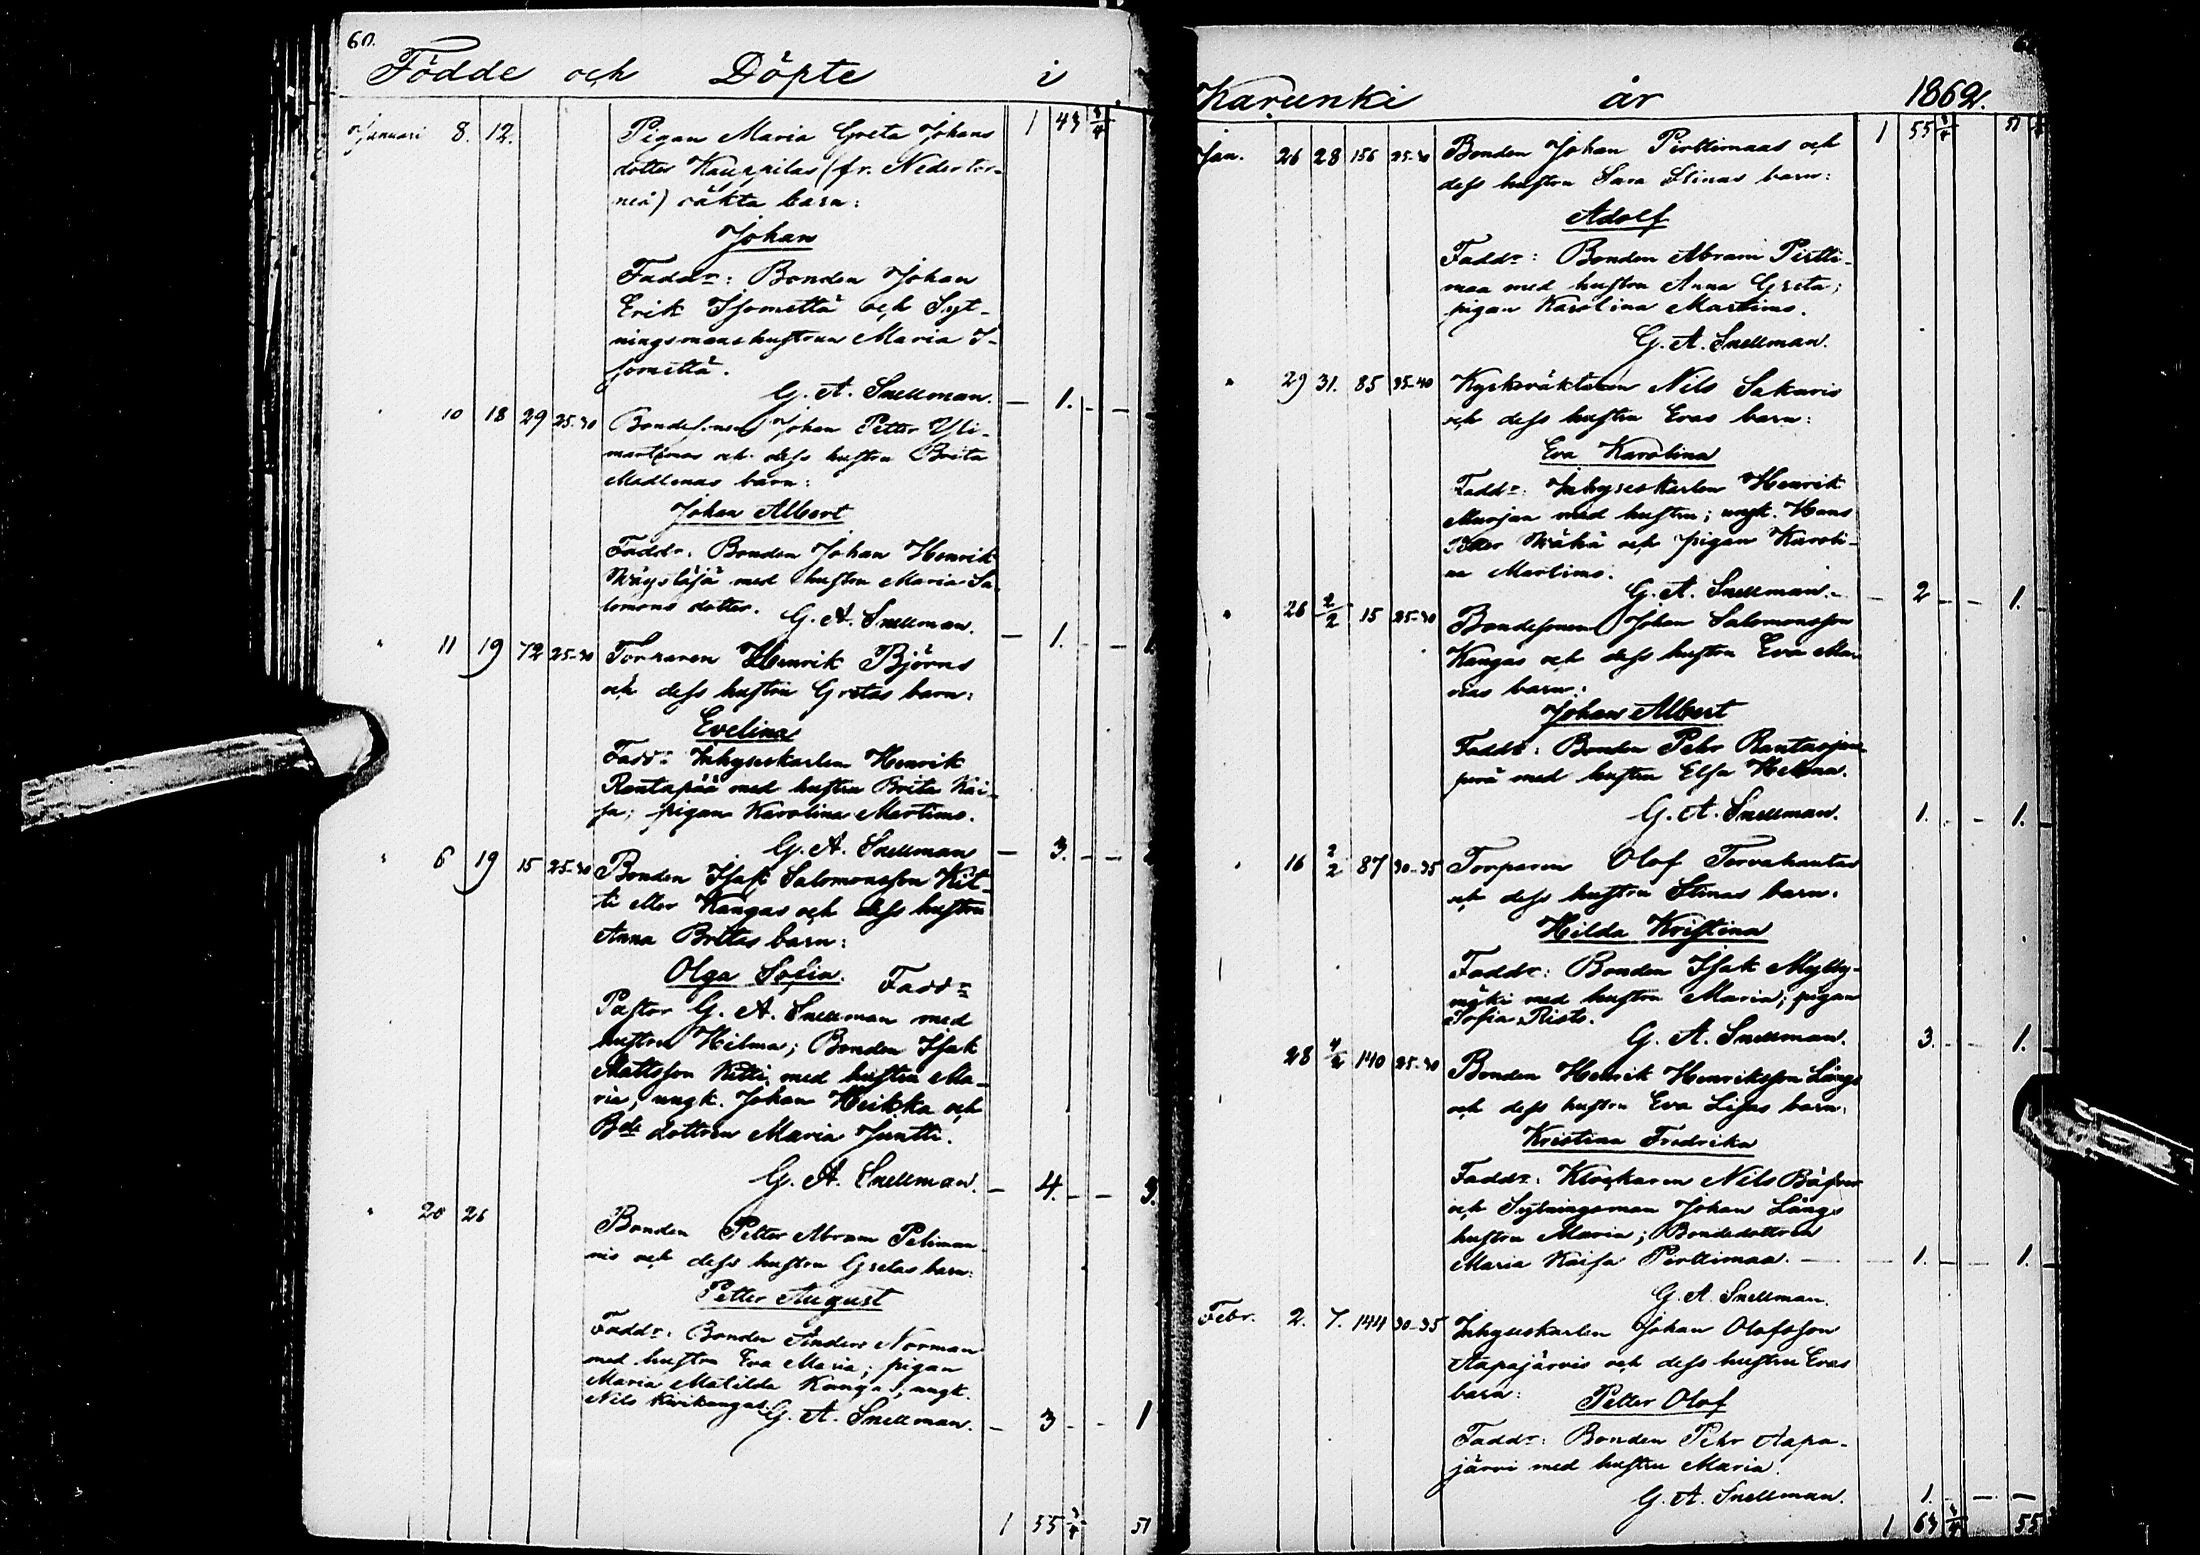 60.
Födde och Döpte i
Januari 8. 12. Pigan Maria Greta Johans 1 43 3/4
dotter Kauppilas (fr. Nedertor-
neå) oäkta barn:
Johan
Fadd:r: Bonden Johan
Erik Isomettä och Syt-
ningsmanshustrun Maria I-
somettä.
G. A. Snellman. — 1. — —
" 10 18 29 25-30 Bondesonen Johan Petter Yli-
martimos och dess hustru Brita
Madlenas barn:
Johan Albert
Fadd:r: Bonden Johan Henrik
med hustru Maria Sa-
lomons dotter. G. A. Snellman. — 1. — —
" 11 19 72 25-30 Torparen Henrik Björns
och dess hustru Gretas barn:
Evelina
Fadd:r: Inhyseskarlen Henrik
Rantapää med hustru Brita Kai-
sa; pigan Karolina Martimo.
G. A. Snellman — 3. — —
" 6 19 15 25-30 Bonden Isak Salomonsson Kit-
ti eller Kangas och dess hustru
Anna Britas barn:
Olga Sofia. Fadd:r
Pastor G. A. Snellman med
hustru Hilma; Bonden Isak
Mattsson Kitti med hustru Ma-
ria, ungk. Johan Heikka och
Bde dottren Maria Juntti.
G. A. Snellman. — 4. — — 3.
" 20 26 Bonden Petter Abram Peliman-
nis och dess hustru Gretas barn:
Petter August
Fadd:r: Bonden Anders Norman
med hustru Eva Maria; pigan
Maria Matilda Kangas, ungk.
Nils Kivikangas. G. A. Snellman. — 3 — — 1
1 55 3/4 51
Karunki år 1862.
Jan. 26 28 156 25-30 Bonden Johan Pirttimaas och 1 55 3/4 51
dess hustru Sara Stinas barn:
Adolf
Fadd:r: Bonden Abram Pirtti-
maa med hustru Anna Greta;
pigan Karolina Martimo.
G. A. Snellman.
" 29 31. 85 35-40 Kyrkoväktaren Nils Sakaris
och dess hustru Evas barn:
Eva Karolina
Fadd:r: Inhyseskarlen Henrik
Murjan med hustru; ungk. Hans
Petter och pigan Karoli-
na Martimo.
G. A. Snellman. — 2 — — 1.
" 26 2/2 15 25-30 Bondesonen Johan Salomonsson
Kangas och dess hustru Eva Ma-
rias barn:
Johan Albert
Fadd:r: Bonden Pehr
med hustru Elsa Helena.
G. A. Snellman. 1. — — 1.
" 16 2/2 87 30-35 Torparen Olof Tervahautas
och dess hustru Stinas barn:
Hilda Kristina
Fadd:r: Bonden Isak Mylly-
mäki med hustru Maria; pigan
Sofia Risto.
G. A. Snellman. 3. — — 1.
28 4/2 140 25-30 Bonden Henrik Henriksson Långs
och dess hustru Eva Lisas barn:
Kristina Fredrika
Fadd:r: Klockaren Nils
och Sytningsman Johan Långs
hustru Maria; Bondedottren
Maria Kaisa Pirttimaa. — 1. — — 1.
G. A. Snellman.
Febr. 2. 7. 144 30-35 Inhyseskarlen Johan Olofsson
Aapajärvis och dess hustru Evas
barn: Petter Olof
Fadd:r: Bonden Pehr Aapa-
järvi med hustru Maria.
G. A. Snellman. 1. — —
1 63 3/4 55